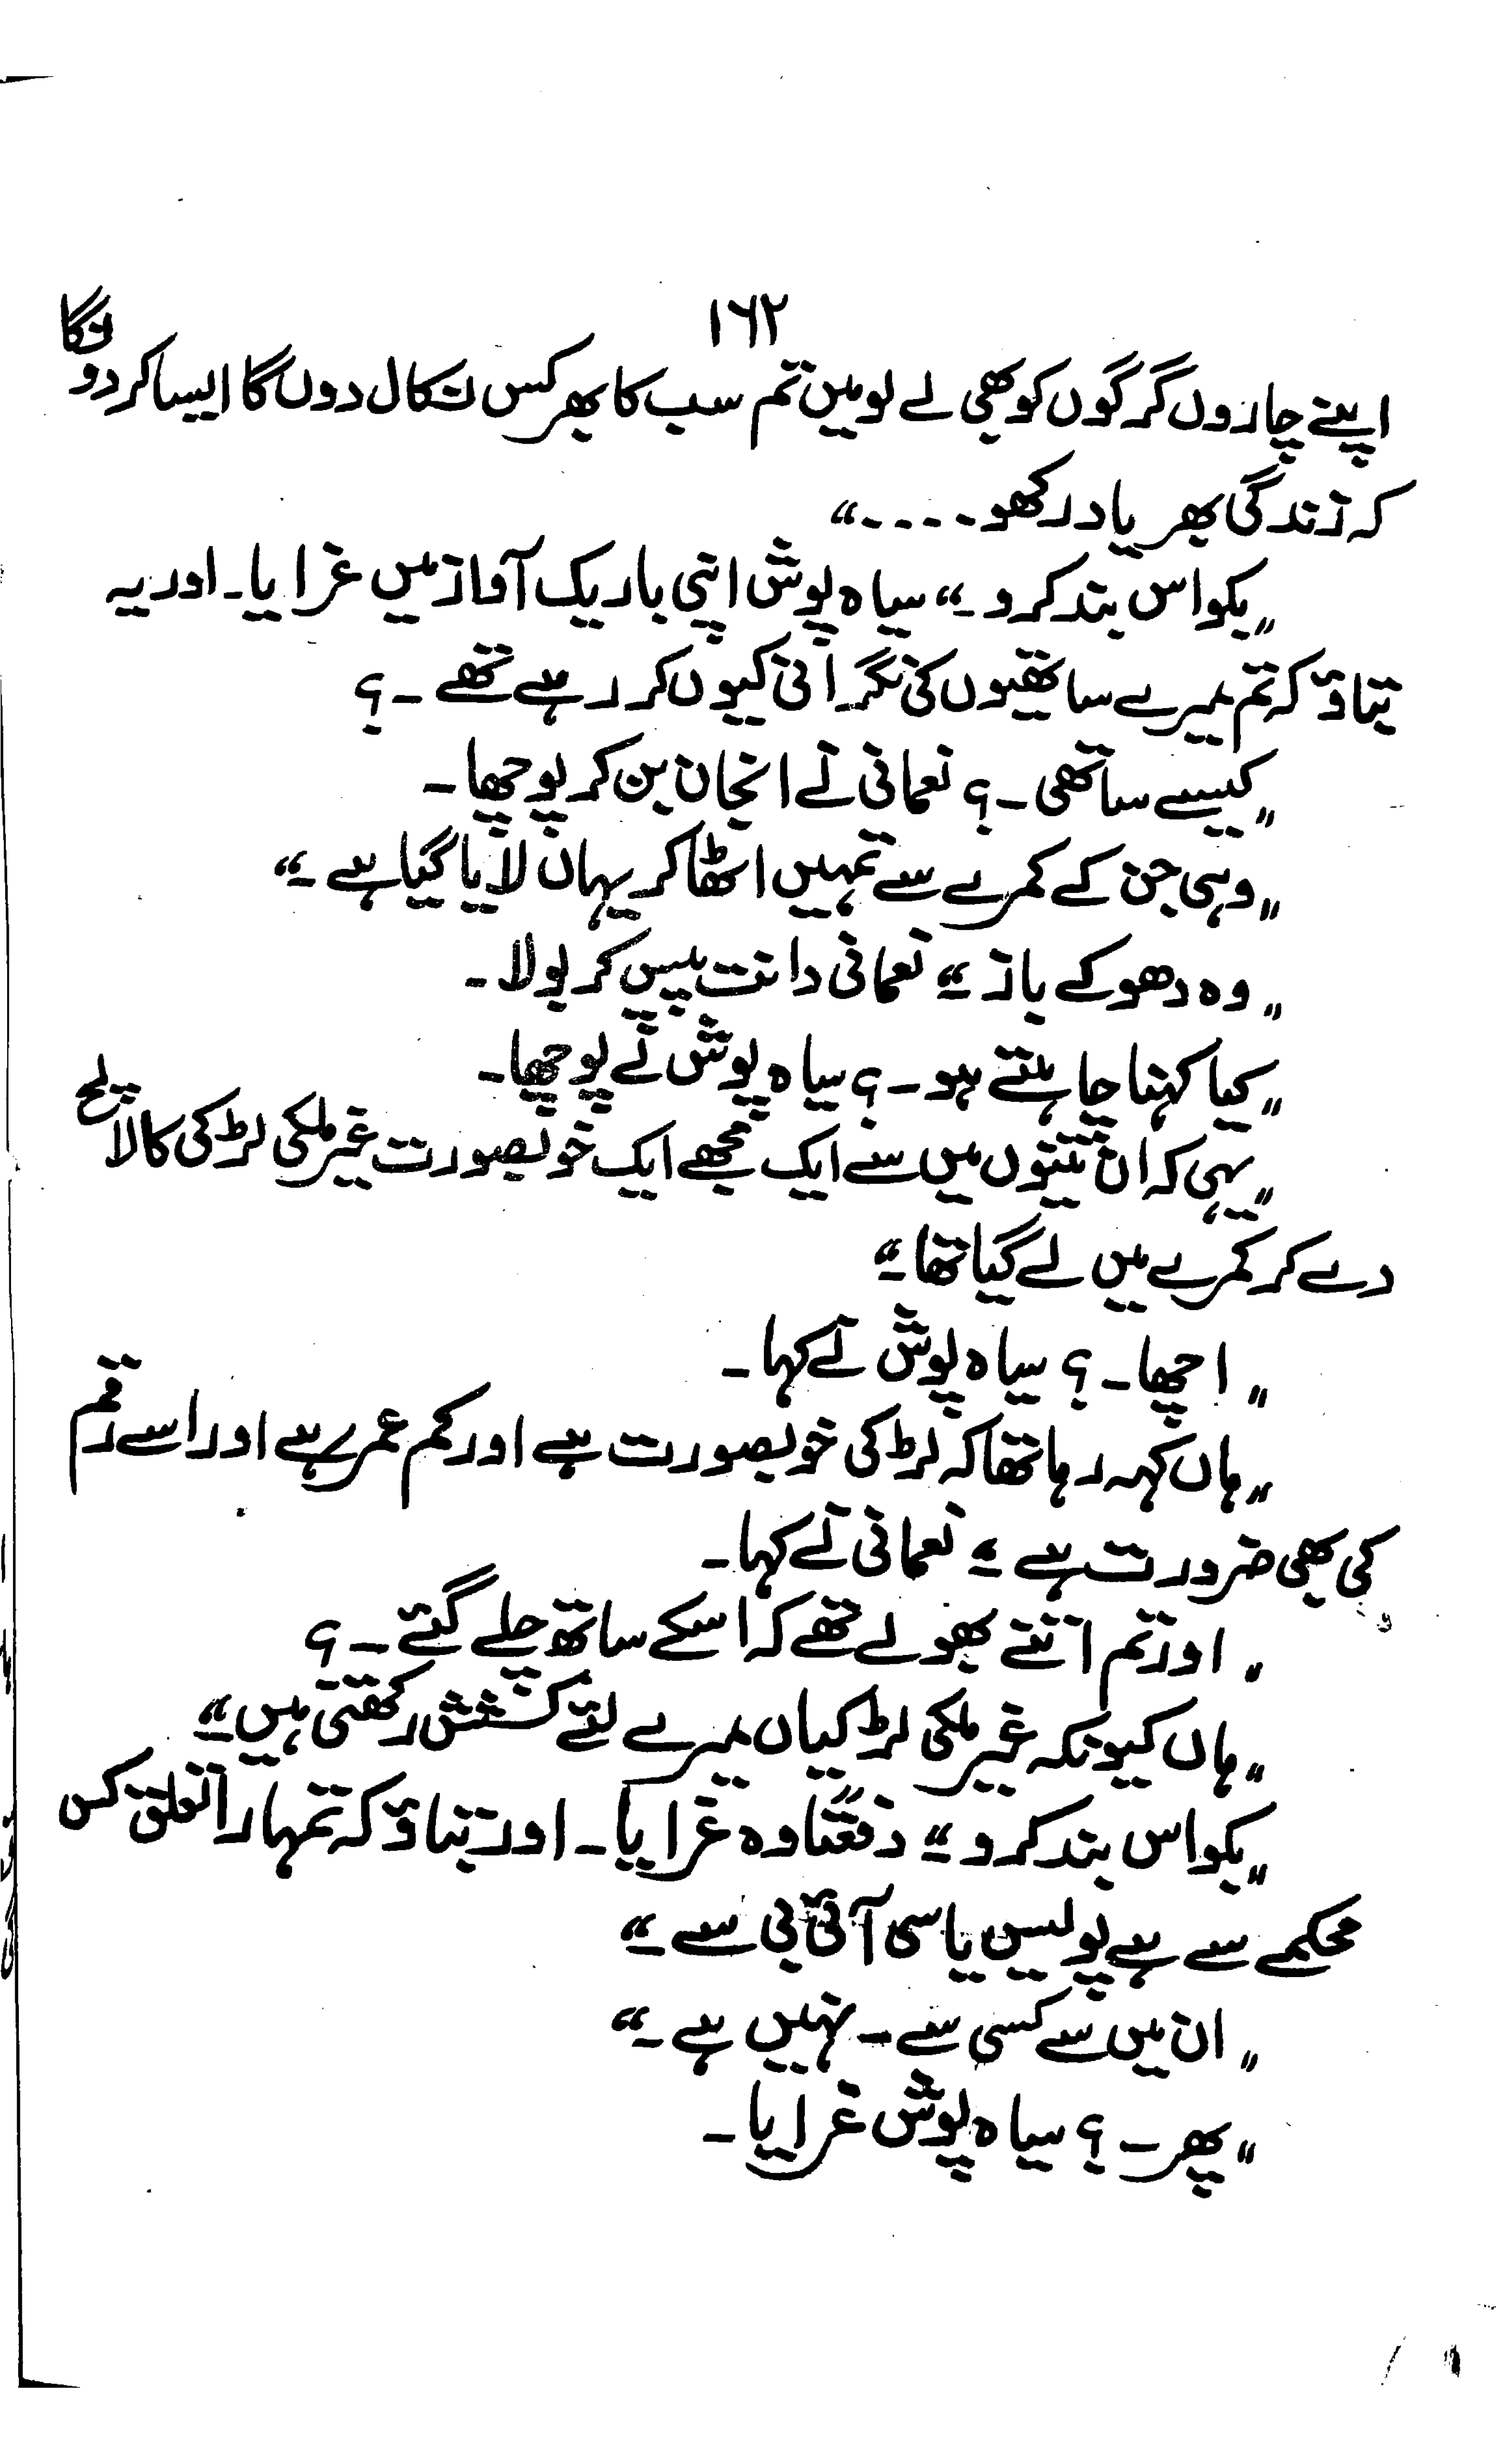 ۱۶۲
اپنے چاروں گرگوں کو بھی لے لو میں تم سب کا بھرکس نکال دوں گا ایسا کر دونگا
کہ زندگی بھر یاد رکھو۔۔۔۔۔“
”بکواس بند کرو۔“ سیاہ پوش اپنی باریک آواز میں غرایا۔ اور یہ
بتاؤ کہ تم میرے ساتھیوں کی نگرانی کیوں کر رہے تھے ۔؟
”کیسے ساتھی ۔؟ نعمانی نے انجان بن کر پوچھا۔
”وہی جن کے کمرے سے تمہیں اٹھا کر یہاں لایا گیا ہے ۔“
”وہ دھوکے باز ۔“ نعمانی دانت پیس کر بولا۔
”کیا کہنا چاہتے ہو ۔؟ سیاہ پوش نے پوچھا۔
”یہی کہ ان تینوں میں سے ایک مجھے ایک خوبصورت غیر ملکی لڑکی کا لالچ
دے کر کمرے میں لے گیا تھا ۔“
”اچھا ۔؟ سیاہ پوش نے کہا ۔
”ہاں کہہ رہا تھا کہ لڑکی خوبصورت ہے اور کم عمر ہے اور اسے رقم
کی بھی ضرورت ہے ۔“ نعمانی نے کہا۔
”اور تم اتنے بھولے تھے کہ اسکے ساتھ چلے گئے ۔؟
”ہاں کیونکہ غیر ملکی لڑکیاں میرے لئے کشش رکھتی ہیں ۔“
”بکواس بند کرو ۔“ دفعتاً وہ غرایا۔ اور بتاؤ کہ تمہارا تعلق کس
محکمے سے ہے پولیس یا سی آئی بی سے ۔“
”ان میں سے کسی سے ۔ نہیں ہے ۔“
”پھر ۔؟ سیاہ پوش غرایا ۔